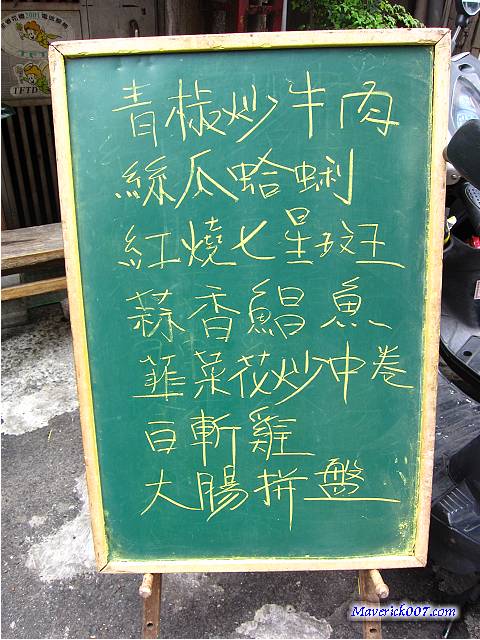 青椒炒牛肉
絲瓜蛤蜊
紅燒七星斑王
蒜香鯧魚
韮菜花炒中卷
白斬雞
大腸拼盤
IFTD
IFTD
Maverick007.com